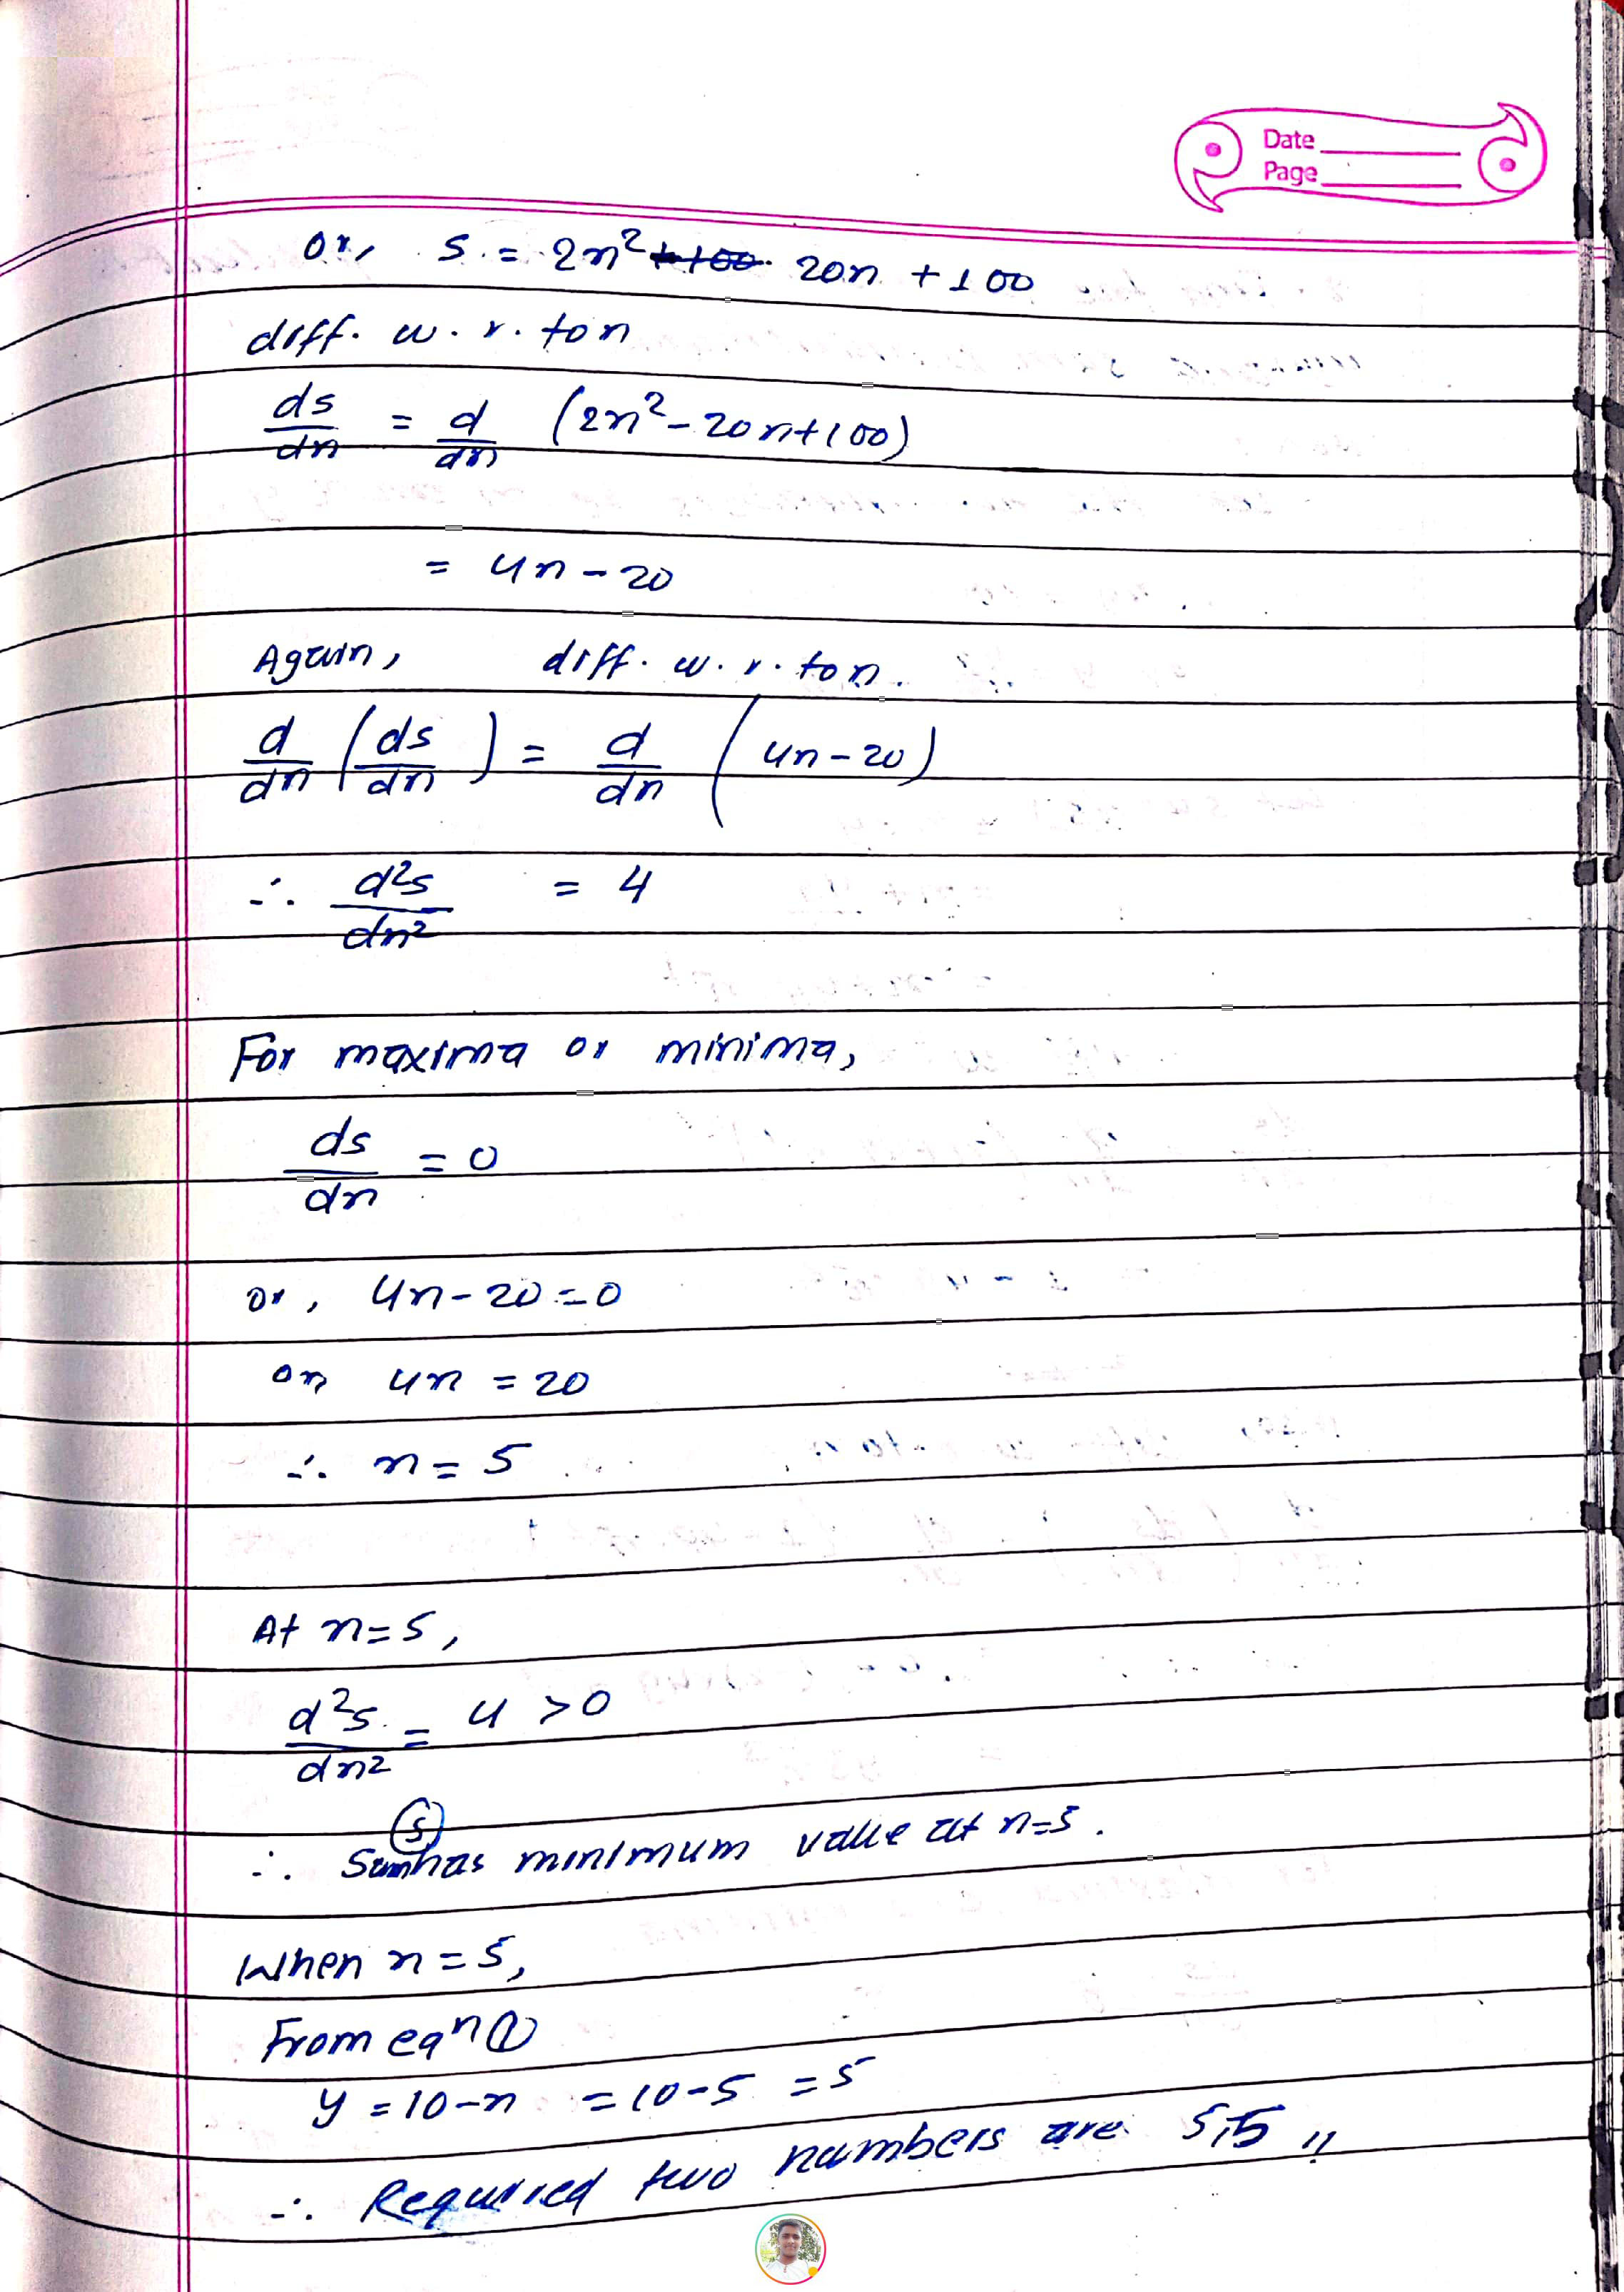 Date
Page
or, s = 2n² ~~+100~~ 20n + 100
diff. w.r. to n
ds/dn = d/dn (2n² - 20n + 100)
= 4n - 20
Again, diff. w.r. to n.
d/dn (ds/dn) = d/dn (4n - 20)
∴ d²s/dn² = 4
For maxima or minima,
ds/dn = 0
or, 4n - 20 = 0
or 4n = 20
∴ n = 5
At n = 5,
d²s/dn² = 4 > 0
(s)
∴ Sum has minimum value at n = 5.
When n = 5,
From eqⁿ ①
y = 10 - n = 10 - 5 = 5
∴ Required two numbers are 5,5 //